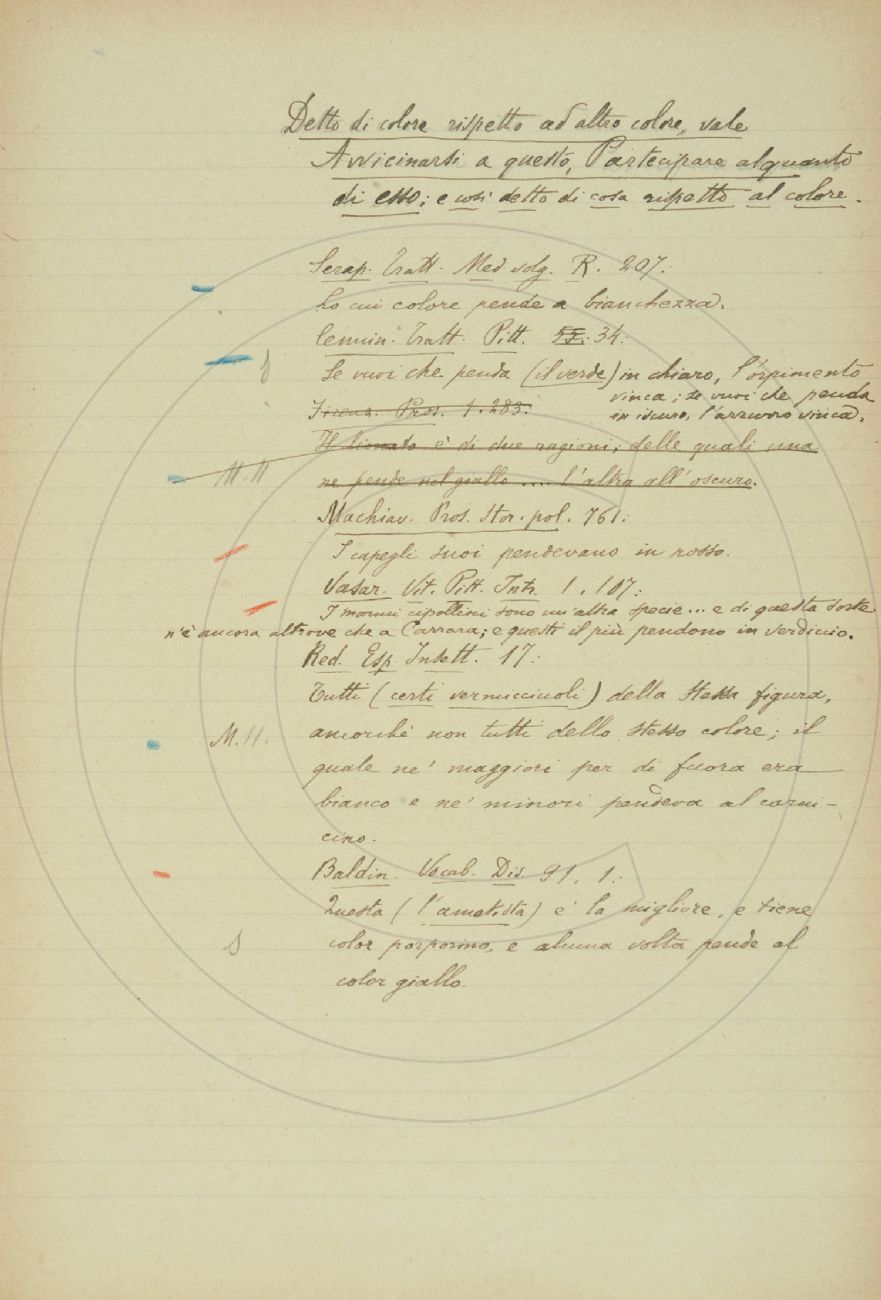 Detto di colore rispetto ad altro colore, vale
Avvicinarsi a questo, Partecipare alquanto
di esso; e così detto di cosa rispetto al colore.
Serap. Tratt. Med. volg. R. 207:
Lo cui colore pende a bianchezza.
Cennin. Tratt. Pitt. 55. 34:
Se vuoi che penda (il verde) in chiaro, l'orpimento
vinca; se vuoi che penda
in iscuro, l'azzurro vinca.
Firenz. Pros. 1. 283:
Il lionato è di due ragioni, delle quali una
ne pende nel giallo .... l'altra all'oscuro.
Machiav. Pros. stor. pol. 761:
I capegli suoi pendevano in rosso.
Vasar. Vit. Pitt. Intr. 1. 107:
I marmi cipollini sono un'altra specie... e di questa sorte
n'è ancora altrove che a Carrara; e questi il più pendono in verdiccio.
Red. Esp. Insett. 17:
Tutti (certi vermicciuoli) della stessa figura,
M. 11.
ancorchè non tutti dello stesso colore; il
quale ne' maggiori per di fuora era
bianco e ne' minori pendeva al carni-
cino.
Baldin. Vocab. Dis. 91. 1:
Questa (l'amatista) è la migliore, e tiene
color porporino, e alcuna volta pende al
color giallo.